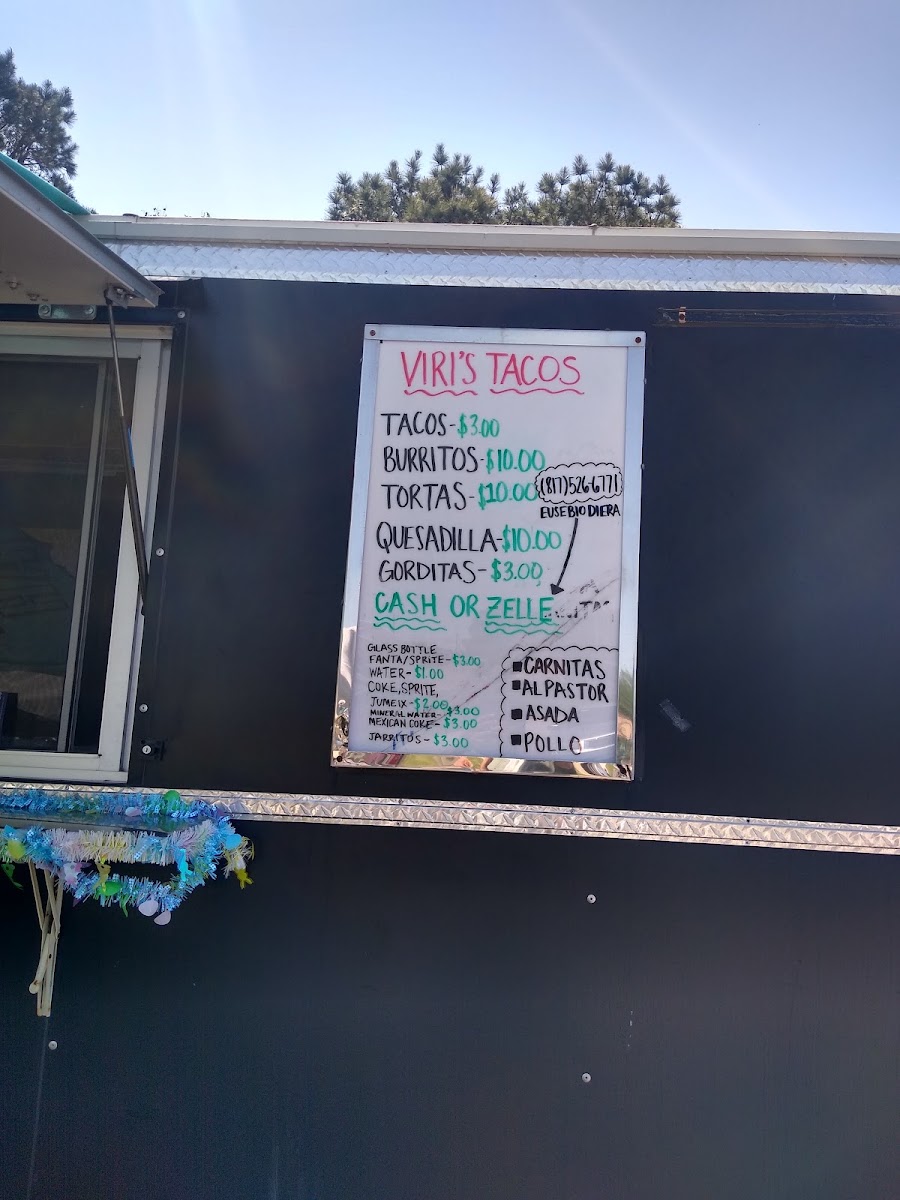 VIRI'S TACOS
TACOS-$3.00
BURRITOS-$10.00
TORTAS-$10.00
(817)526-6771
EUSEBIO DIERA
QUESADILLA-$10.00
GORDITAS-$3.00
CASH OR ZELLE
GLASS BOTTLE
FANTA/SPRITE-$3.00
WATER-$1.00
COKE, SPRITE,
JUMEIX-$2.00
MINERAL WATER-$3.00
MEXICAN COKE-$3.00
JARRITOS-$3.00
CARNITAS
AL PASTOR
ASADA
POLLO